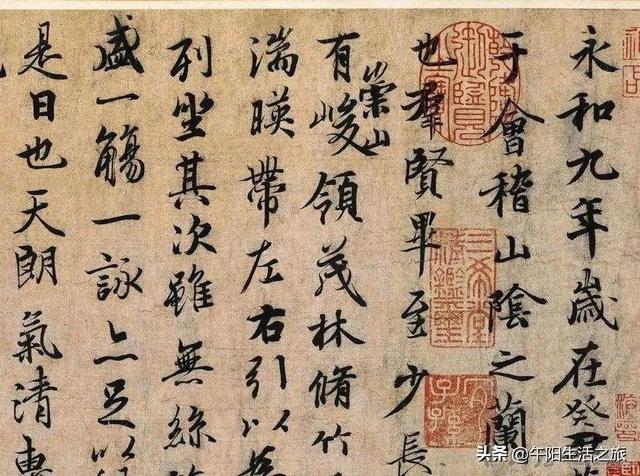 永和九年歲在癸丑
于會稽山陰之蘭
也羣賢畢至少長
崇山
有峻領茂林脩竹
湍暎帶左右引以為
列坐其次雖無絲
盛一觴一詠亦足以
是日也天朗氣清惠
三希堂
精鑑璽
宜子孫
头条 @午阳生活之旅